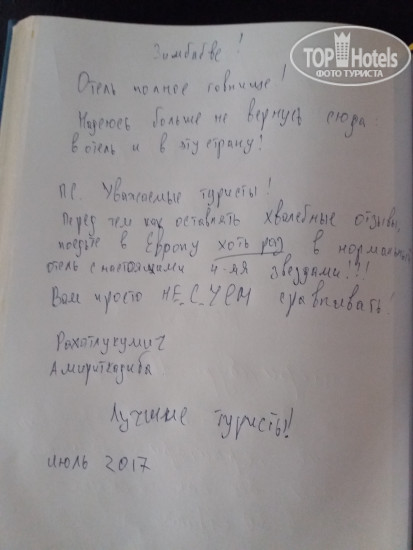 TOP Hotels
ФОТО ТУРИСТА
Зомбабве!
Отель полное говнище!
Надеюсь больше не вернусь сюда:
в отель и в эту страну!
ПС. Уважаемые туристы!
Перед тем как оставлять хвалебные отзывы,
поедьте в Европу хоть раз в нормальный
отель с настоящими 4-мя звездами!!!
Вам просто НЕ_С_ЧЕМ сравнивать!
Рахатлукумич
Амириткодиба
Лучшие туристы!
июль 2017